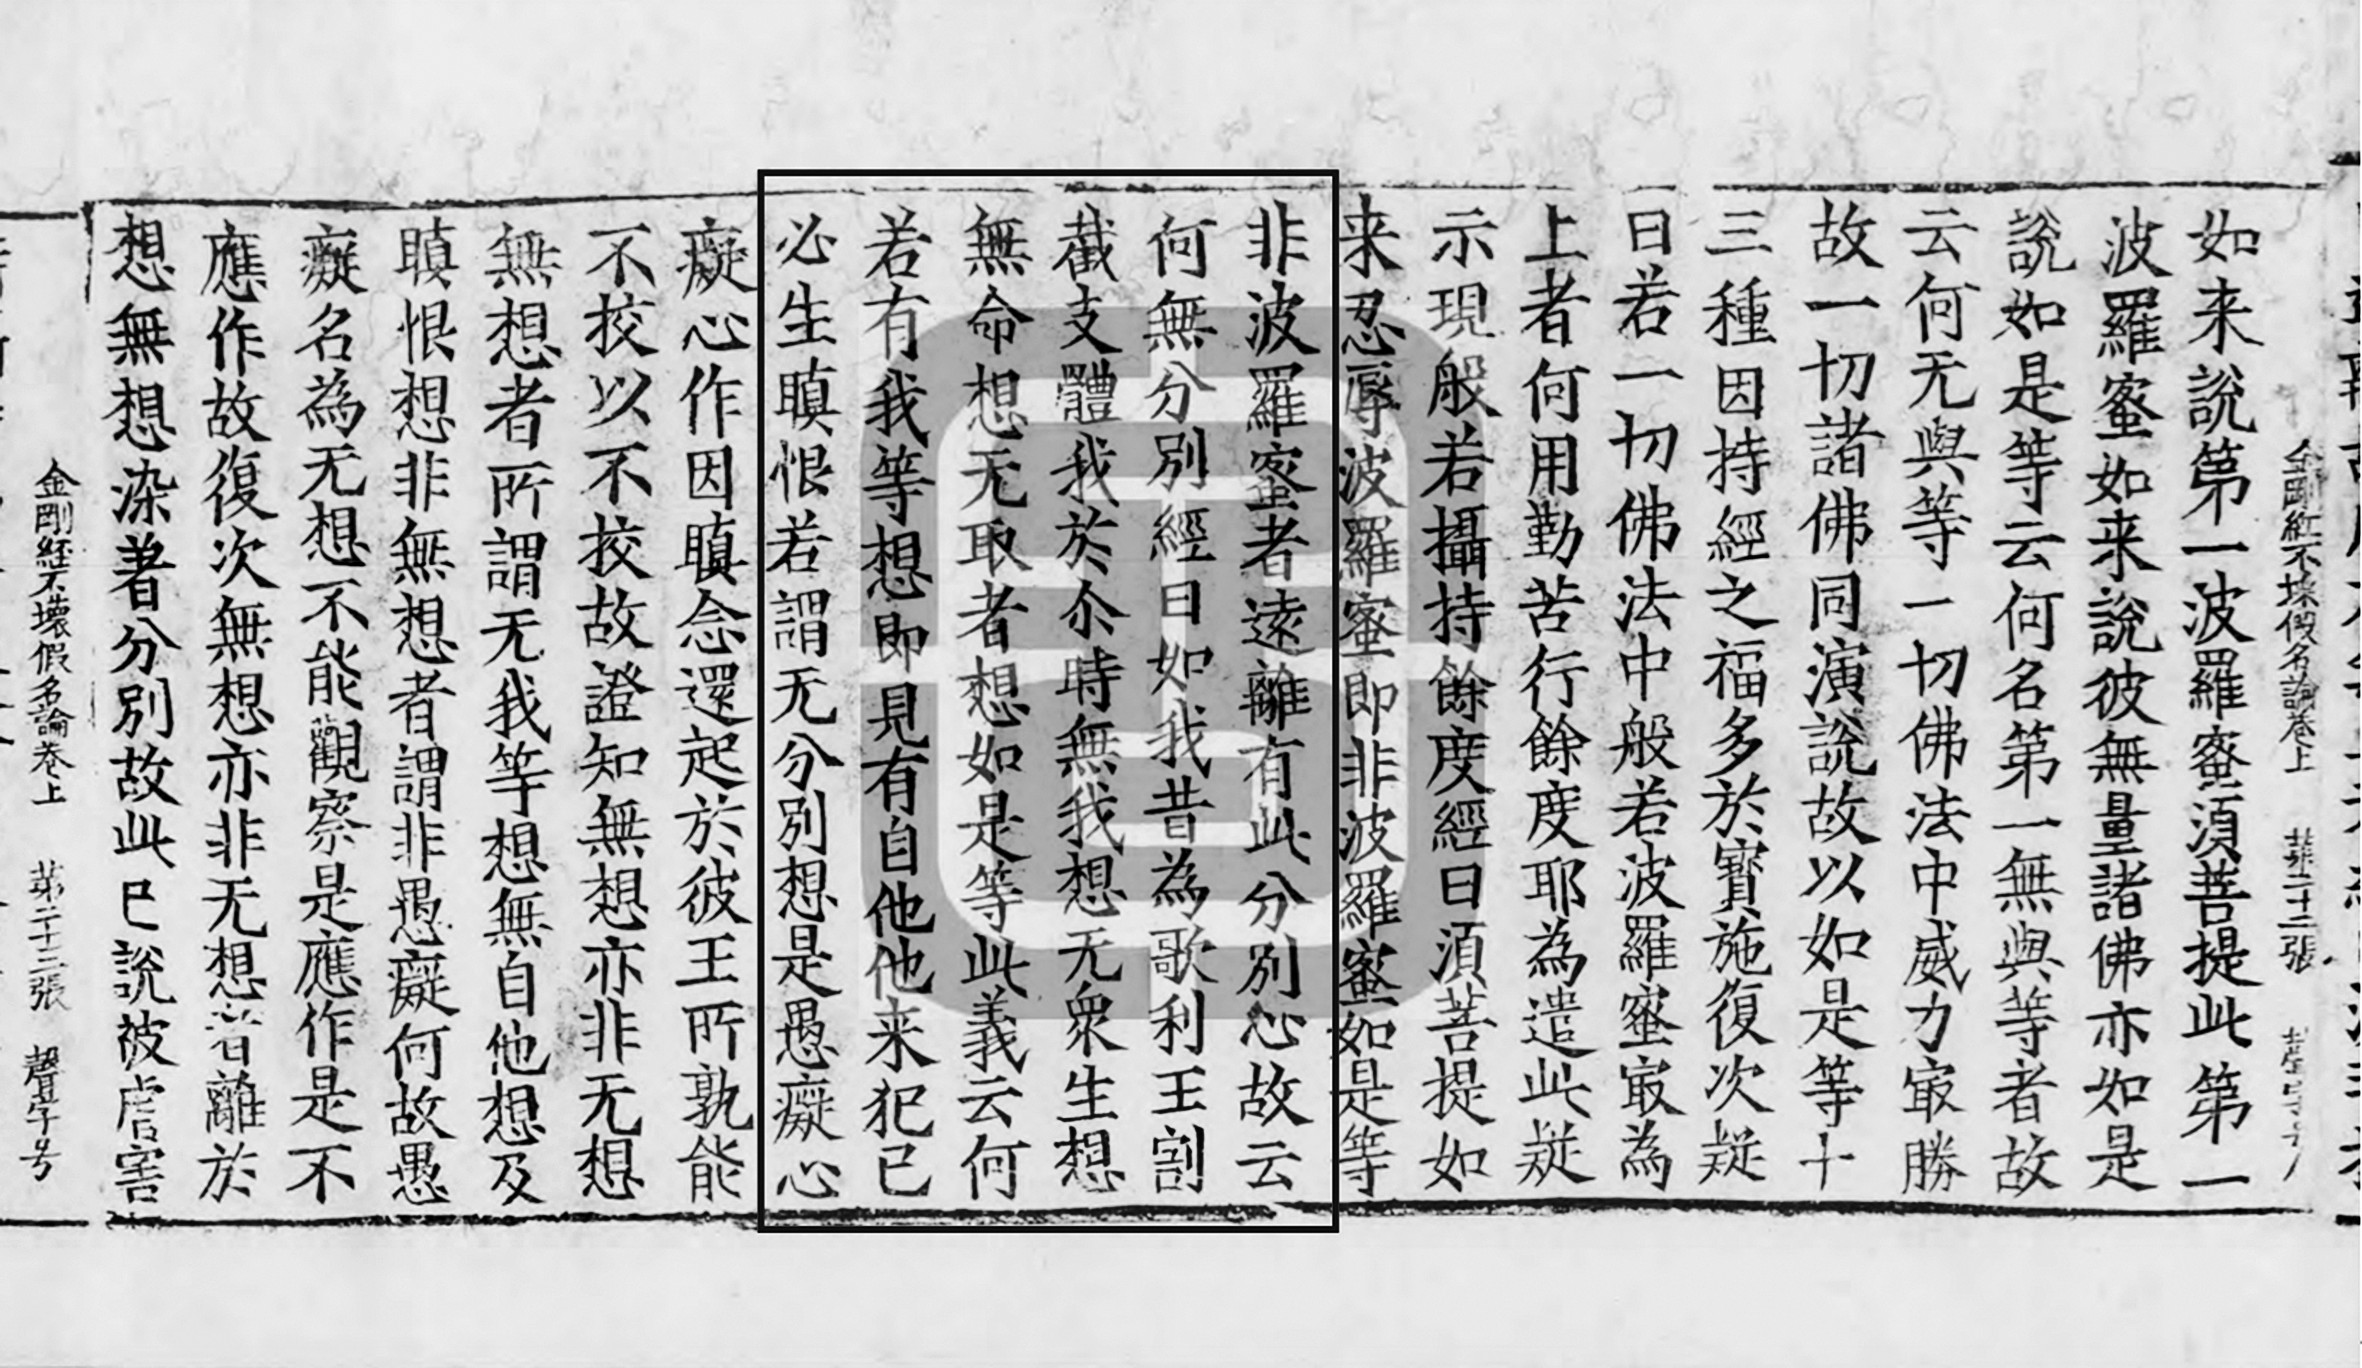 金剛經不壞假名論卷上 第二十二張
如来說第一波羅蜜湏菩提此第一
波羅蜜如来說彼無量諸佛亦如是
說如是等云何名第一無與等者故
云何无與等一切佛法中威力㝡勝
故一切諸佛同演說故以如是等十
三種因持經之福多於寶施復次疑
曰若一切佛法中般若波羅蜜㝡為
上者何用勤苦行餘度耶為遣此疑
示現般若攝持餘度經曰湏菩提如
来忍辱波羅蜜即非波羅蜜如是等
非波羅蜜者遠離有此分別心故云
何無分別經曰如我昔為歌利王割
截支體我於尒時無我想无衆生想
無命想无取者想如是等此義云何
若有我等想即見有自他他来犯已
必生瞋恨若謂无分別想是愚癡心
癡心作因瞋念還起於彼王所孰能
不挍以不挍故證知無想亦非无想
無想者所謂无我等想無自他想及
瞋恨想非無想者謂非愚癡何故愚
癡名為无想不能觀察是應作是不
應作故復次無想亦非无想者離於
想無想染著分別故此巳說被虐害
金剛經不壞假名論卷上 第二十三張 聲字号